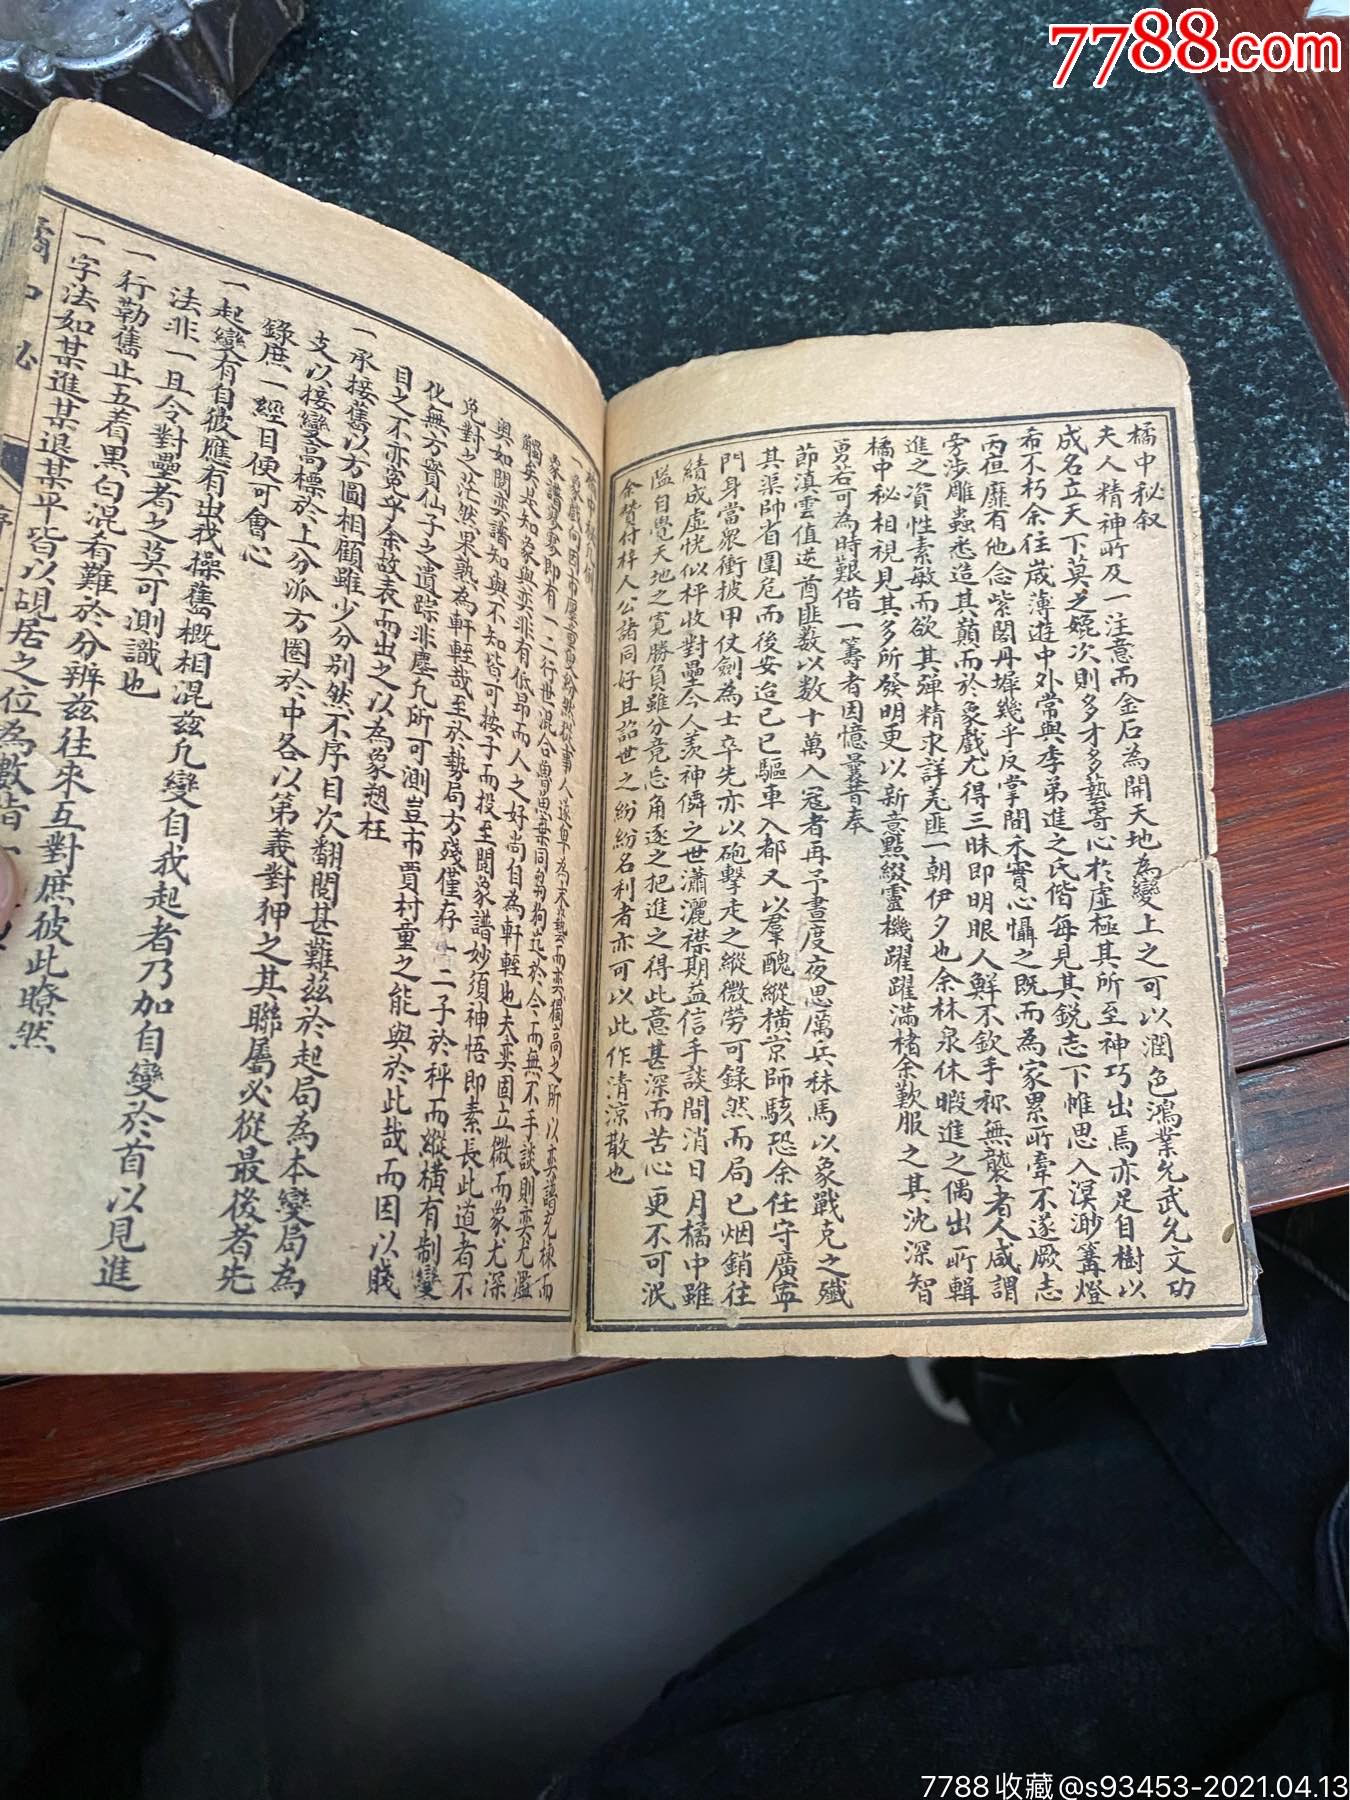 7788.com
橘中秘叙
夫人精神所及一注意而金石為開天地為變上之可以潤色鴻業允武允文功
成名立天下莫之媲次則多才多藝寄心於虛極其所至神巧出焉亦足自樹以
希不朽余往歲薄遊中外常與季弟進之氏偕每見其銳志下帷思入溟渺篝燈
丙夜靡有他念紫閣丹墀幾乎反掌間禾實心懾之既而為家累所牽不遂厥志
旁涉雕蟲悉造其巔而於象戲尤得三昧即明眼人鮮不欽手稱無襲者人咸謂
進之資性素敏而欲其殫精求詳羌匪一朝伊夕也余林泉休暇進之偶出所輯
橘中秘相視見其多所發明更以新意點綴靈機躍躍滿楮余歎服之其沈深智
勇若可為時艱借一籌者因憶曩昔奉
節滇雲值逆酋匪數以數十萬入寇者再予晝度夜思厲兵秣馬以象戰克之殲
其渠帥省圍危而後安迨己巳驅車入都又以羣醜縱橫京師駭恐余任守廣寧
門身當眾衝披甲仗劍為士卒先亦以砲擊走之縱微勞可錄然而局已烟銷往
績成虛恍似枰收對壘今人羨神僊之世瀟灑襟期益信手談間消日月橘中雖
隘自覺天地之寬勝負雖分竟忘角逐之把進之得此意甚深而苦心更不可泯
余贊付梓人公諸同好且詔世之紛紛名利者亦可以此作清涼散也
橘中秘凡例
一象戲向因市廛
事人遂卑為末藝而奕獨高之所以奕譜充棟而
象譜寥寥即有一二行世混合魯
於今而無不手談則奕尤濫
觴矣其知象與奕非有低昂而人之好尚自為軒輊也夫奕固立微而象尤深
奥如閱奕譜知與不知皆可按子而投至閱象譜妙須神悟即素長此道者不
免對之茫然果孰為軒輊哉至於勢局方殘僅存一二子於枰而縱橫有制變
化無方實仙子之遺踪非塵凡所可測豈市賈村童之能與於此哉而因以賤
目之不亦冤乎余故表而出之以為象愬枉
一承接舊以方圖相顧雖少分別然不序目次翻閱甚難茲於起局為本變局為
支以接變高標於上分派方圈於中各以第義對狎之其聯屬必從最後者先
錄庶一經目便可會心
一起變有自彼應有出我操舊概相混茲凡變自我起者乃加自變於首以見進
法非一且令對壘者之莫可測識也
一行勒舊止五着黑白混肴難於分辨茲往來互對庶彼此瞭然
一字法如某進某退某平皆以覘居之位為數皆一
橘中秘
序
7788收藏@s93453-2021.04.13